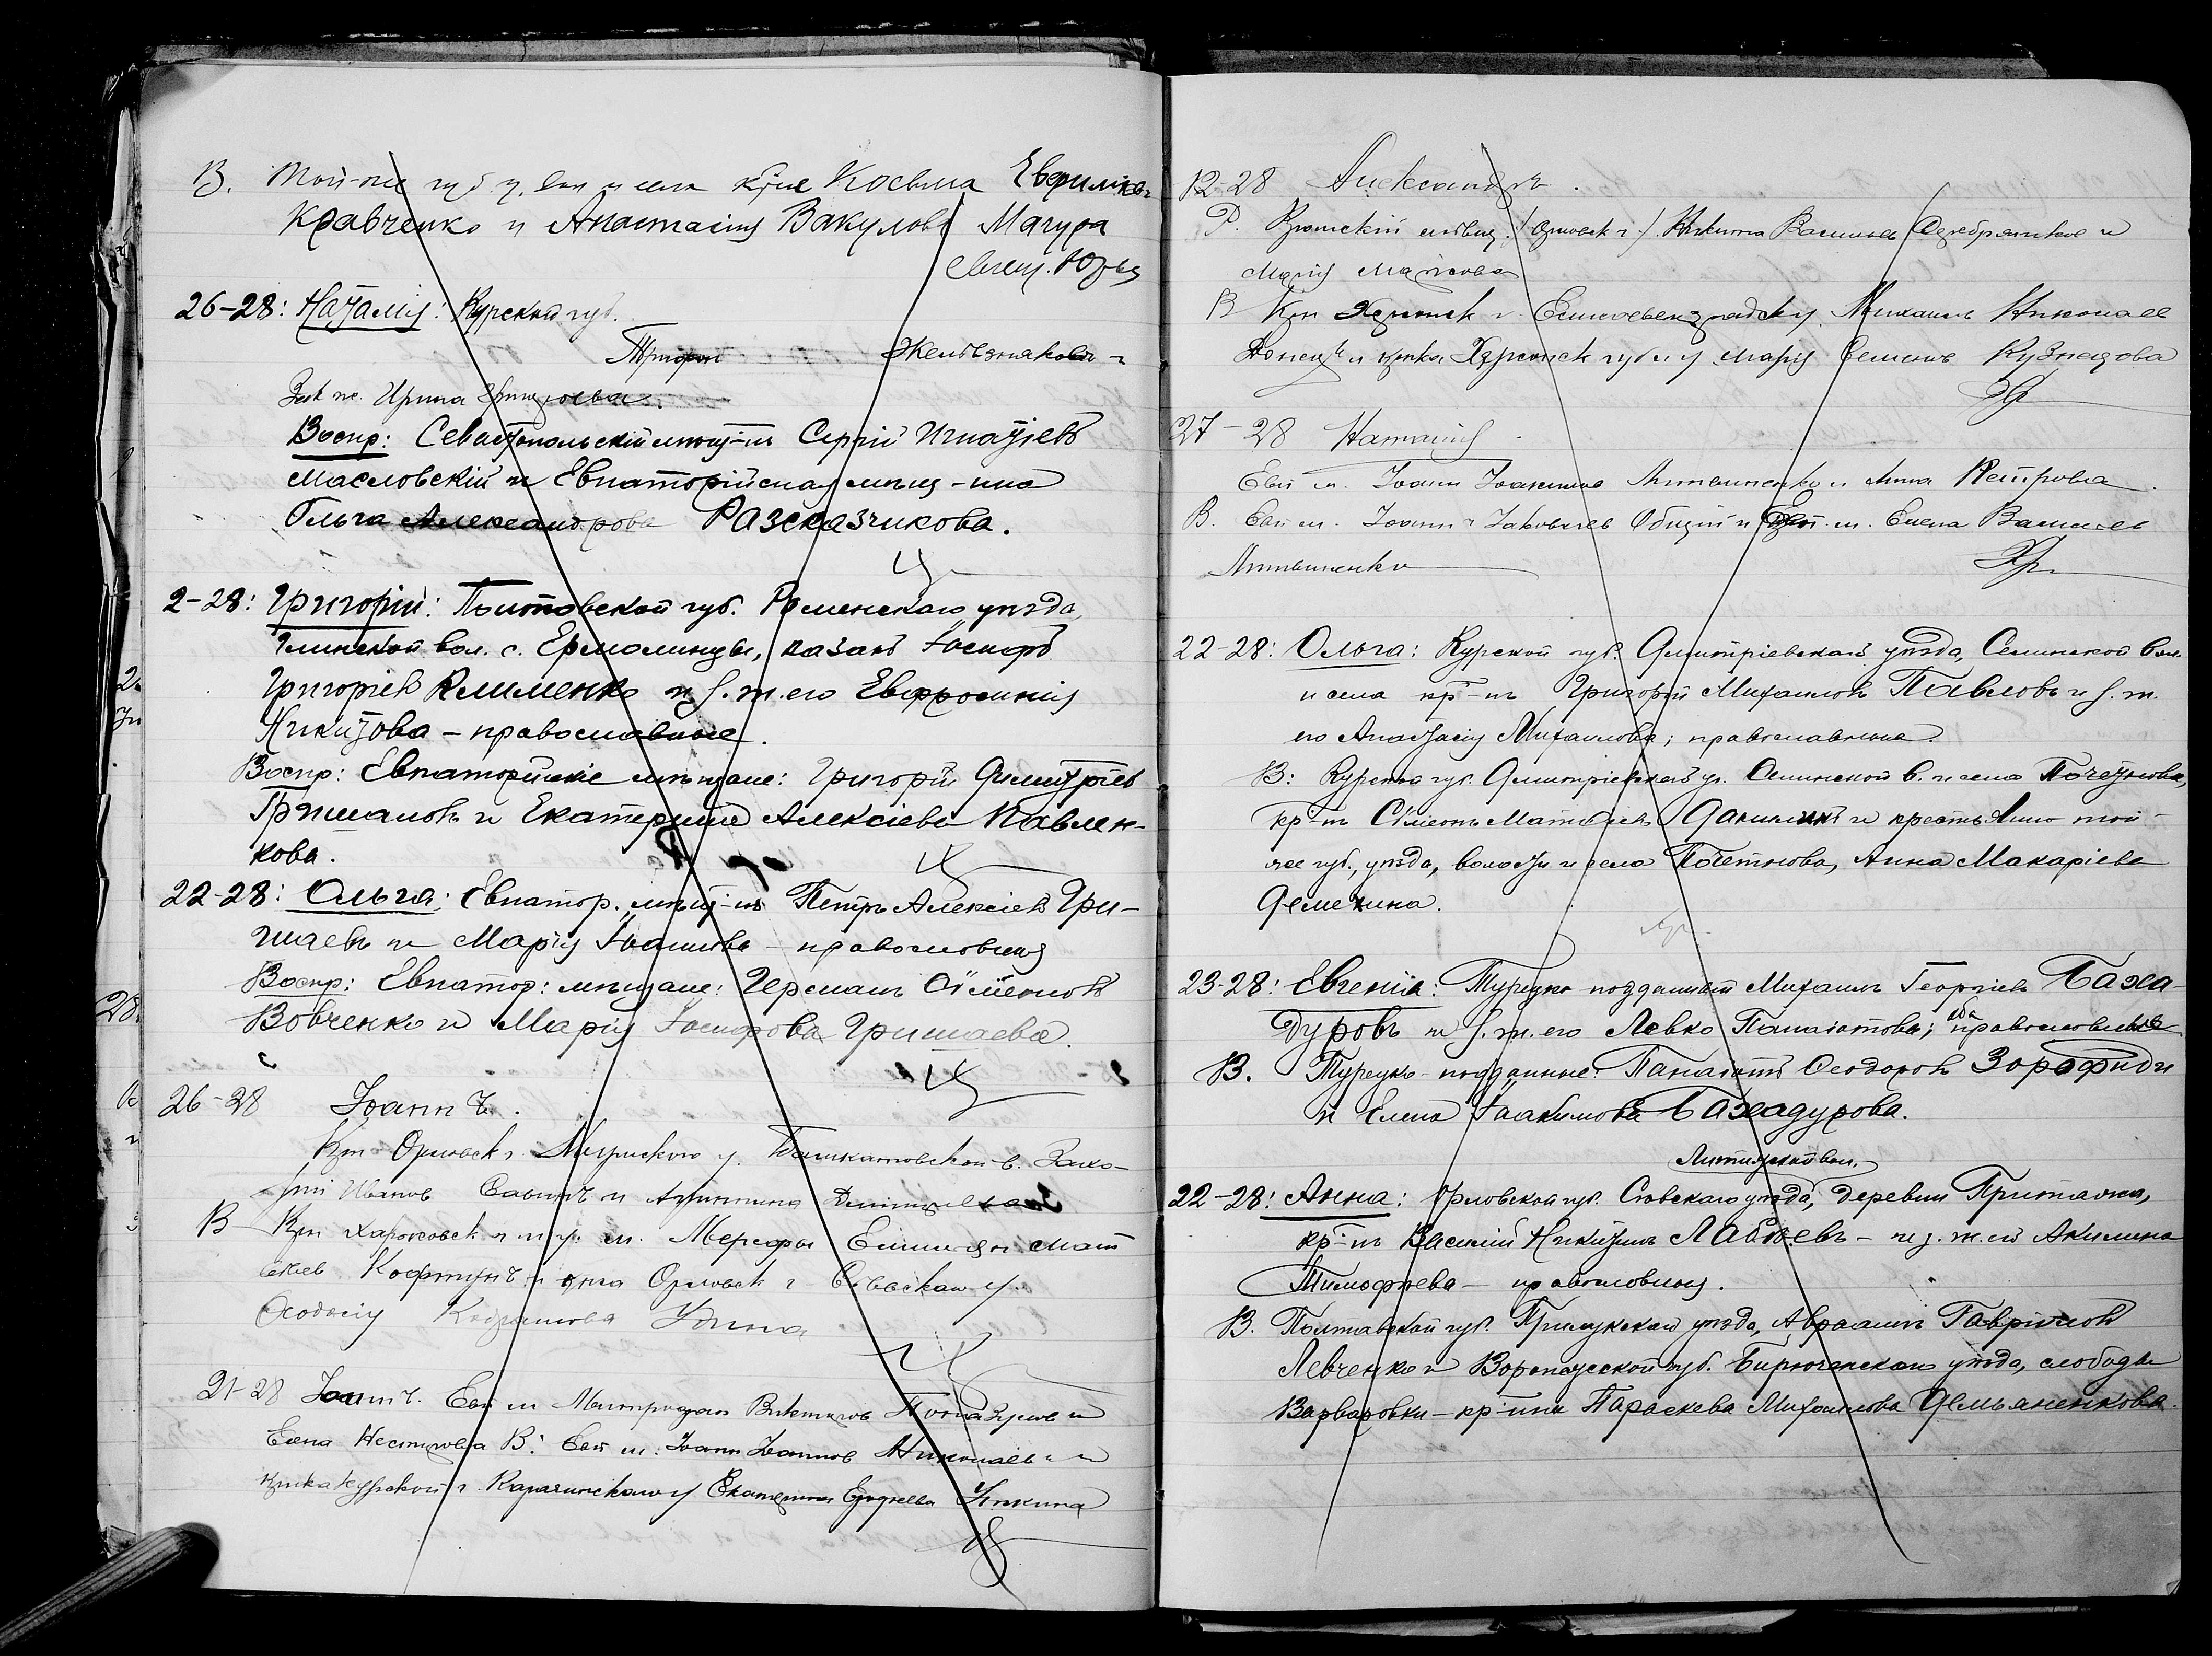 В. Той-же губ. у. вол. и села кр-не Косьма Евфиміевъ
Кравченко и Анастасія Вакулова Мачура
свящ.
26-28: Наталія: Курской губ.
Григорій Желѣзняковъ
Зак. ж. Ирина Григорьева.
Воспр: Севастопольскій мѣщ-нъ Сергій Игнатіевъ
Масловскій и Евпаторійская мѣщ-нка
Ольга Александрова Разсказчикова.
2-28: Григорій: Полтавской губ. Роменскаго уѣзда,
Глинской вол. с. Ермолинцы, казакъ Іосифъ
Григоріевъ Клименко и з. ж. его Евфросинія
Никитова - православные.
Воспр: Евпаторійскіе мѣщане: Григорій Димитріевъ
Гришановъ и Екатерина Алексіева Павлен-
кова.
22-28: Ольга: Евпатор. мѣщ-нъ Петръ Алексіевъ Гри-
шаевъ и Марія Іоаннова - православныя
Воспр: Евпатор: мѣщане: Германъ Симеоновъ
Вовченко и Марія Іосифова Гришаева.
26-28 Іоаннъ.
Кр. Орловск. г. у. Башкатовской в. Заха-
рій Ивановъ Савинъ и
В Кр. Харьковск. г. и у. м. Мерефы Емиліанъ Мат
вѣевъ Кофтунъ и кр-ка Орловск. г. Сѣвскаго у.
Ѳеодосія
21-28 Іоаннъ. Евп. м. Митрофанъ Викторовъ и
Елена Несторова В: Евп. м. Іоаннъ Іоанновъ Николаевъ и
кр-ка Курской г. у. Екатерина
12-28 Александръ.
Р. мѣщ. (Орловск. г.) Никита Васильевъ Серебряковъ и
Марія Маркова
В Кр. Херсонск. г. Елисаветградск. у. Михаилъ Николаев
Донецъ и кр-ка Херсонск. губ. и у. Марія Семенов Кузнецова
27-28 Наталія
Евп. м. Іоаннъ Іоакимовъ Литвиненко и Анна Петрова.
В. Евп. м. Іоаннъ Іаковлев Общій и Евп. м. Елена Васильев
Литвиненко
22-28: Ольга: Курской губ. Димитріевскаго уѣзда, Селинской вол.
и села кр-нъ Григорій Михаиловъ Павловъ и з. ж.
его Анастасія Михаилова; православные.
В: Курской губ. Димитріевскаго у. Селинской в. и села Почетнова,
кр-нъ Симеонъ Матвіевъ Данилинъ и крестьянка той-
же губ., уѣзда, волости и села Почетнова, Анна Макаріева
Демехина.
23-28: Евгенія: Турецко подданный Михаилъ Георгіевъ Баха-
дуровъ и з. ж. его Левко Панаіотова; оба православные
В. Турецко-подданные: Панаіотъ Ѳеодоровъ Зорафиди
и Елена Іоакимова Бахадурова.
Литижской вол.
22-28: Анна: Орловской губ. Сѣвскаго уѣзда, деревни
кр-нъ Василій Никитинъ Лабѣевъ - и з. ж. его Акилина
Тимофѣева - православныя.
В. Полтавской губ. Прилукскаго уѣзда, Авраамъ Гавріиловъ
Левченко и Воронежской губ. Бирюченскаго уѣзда, слободы
Варваровки - кр-нка Параскева Михаилова Демьяненкова.